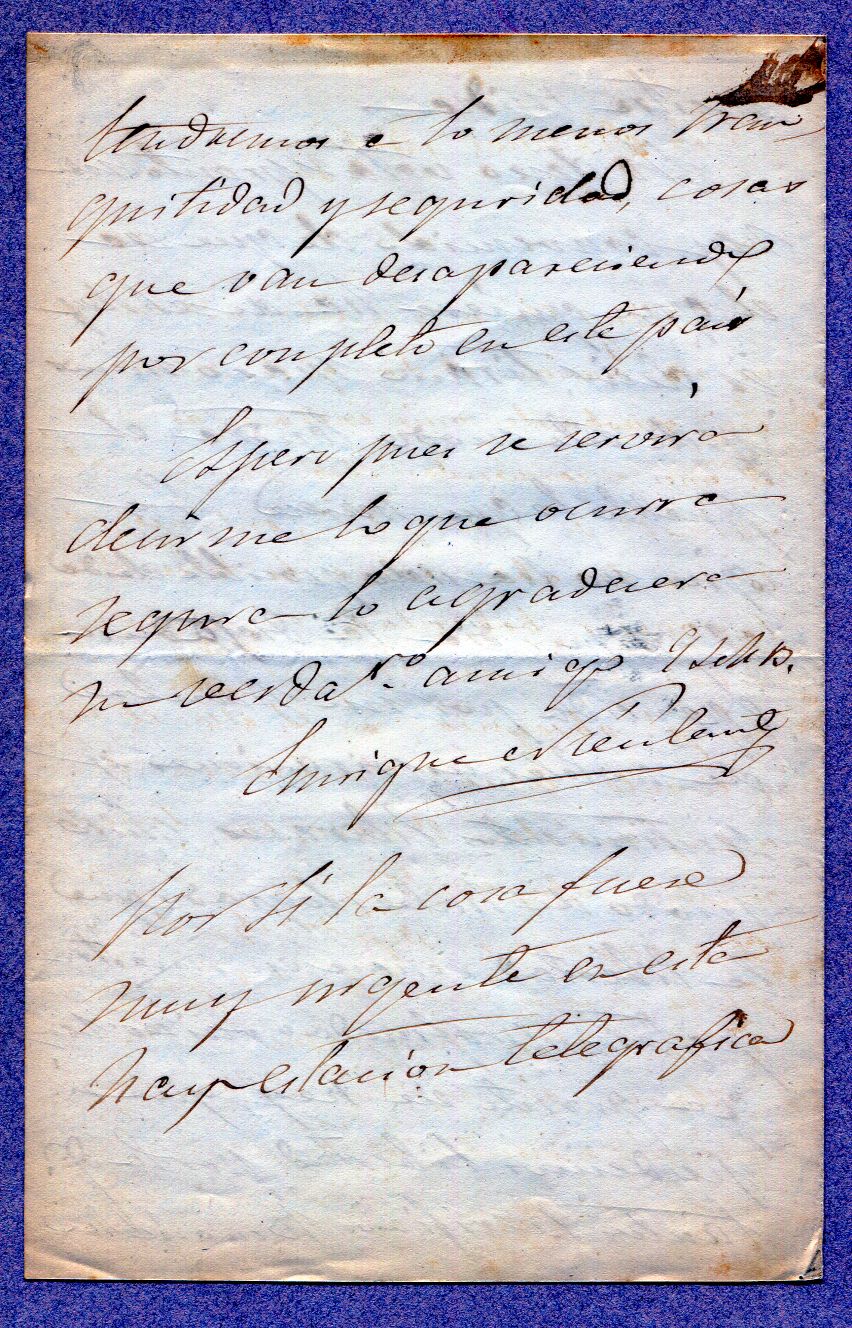 tendremos a lo menos tran
quilidad y seguridad, cosas
que van desapareciendo
por completo en este país
Espero pues se servira
decirme lo que ocurra
seguro lo agradecera
su verdº amigo Q S M B.
Enrique
Por si la cosa fuese
muy urgente en esta
hay estacion telegrafica